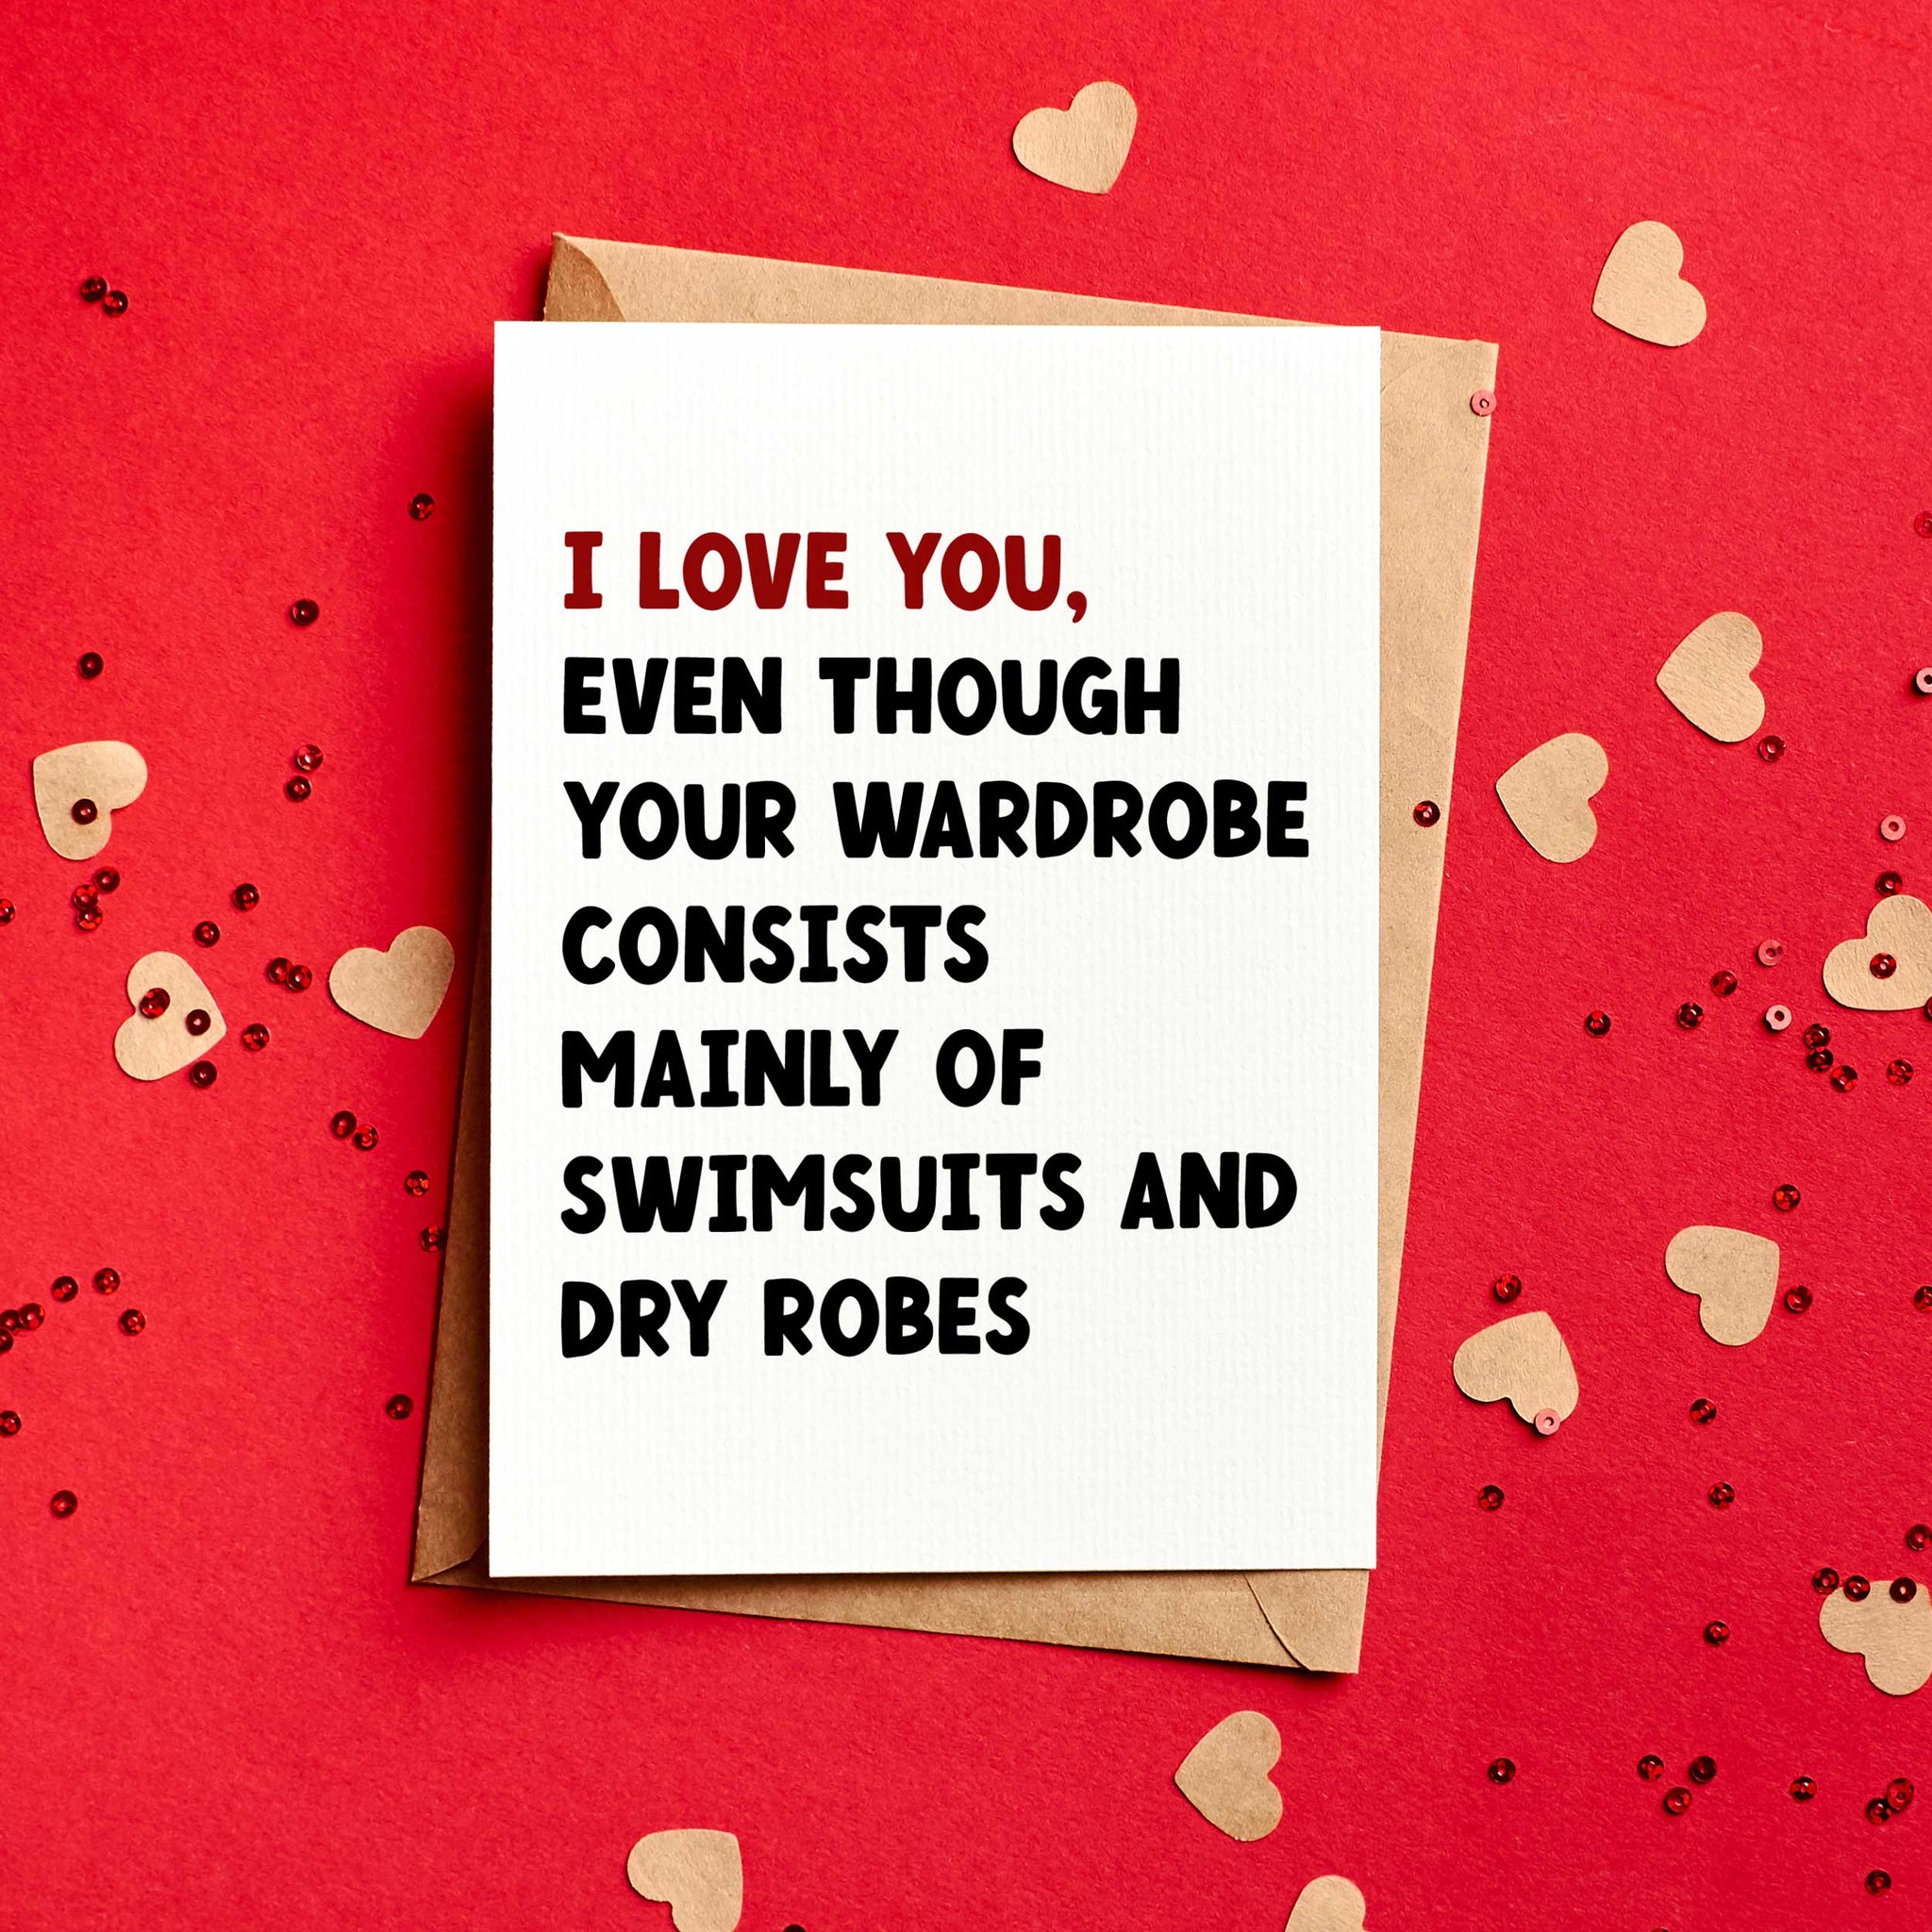 I LOVE YOU,
EVEN THOUGH
YOUR WARDROBE
CONSISTS
MAINLY OF
SWIMSUITS AND
DRY ROBES